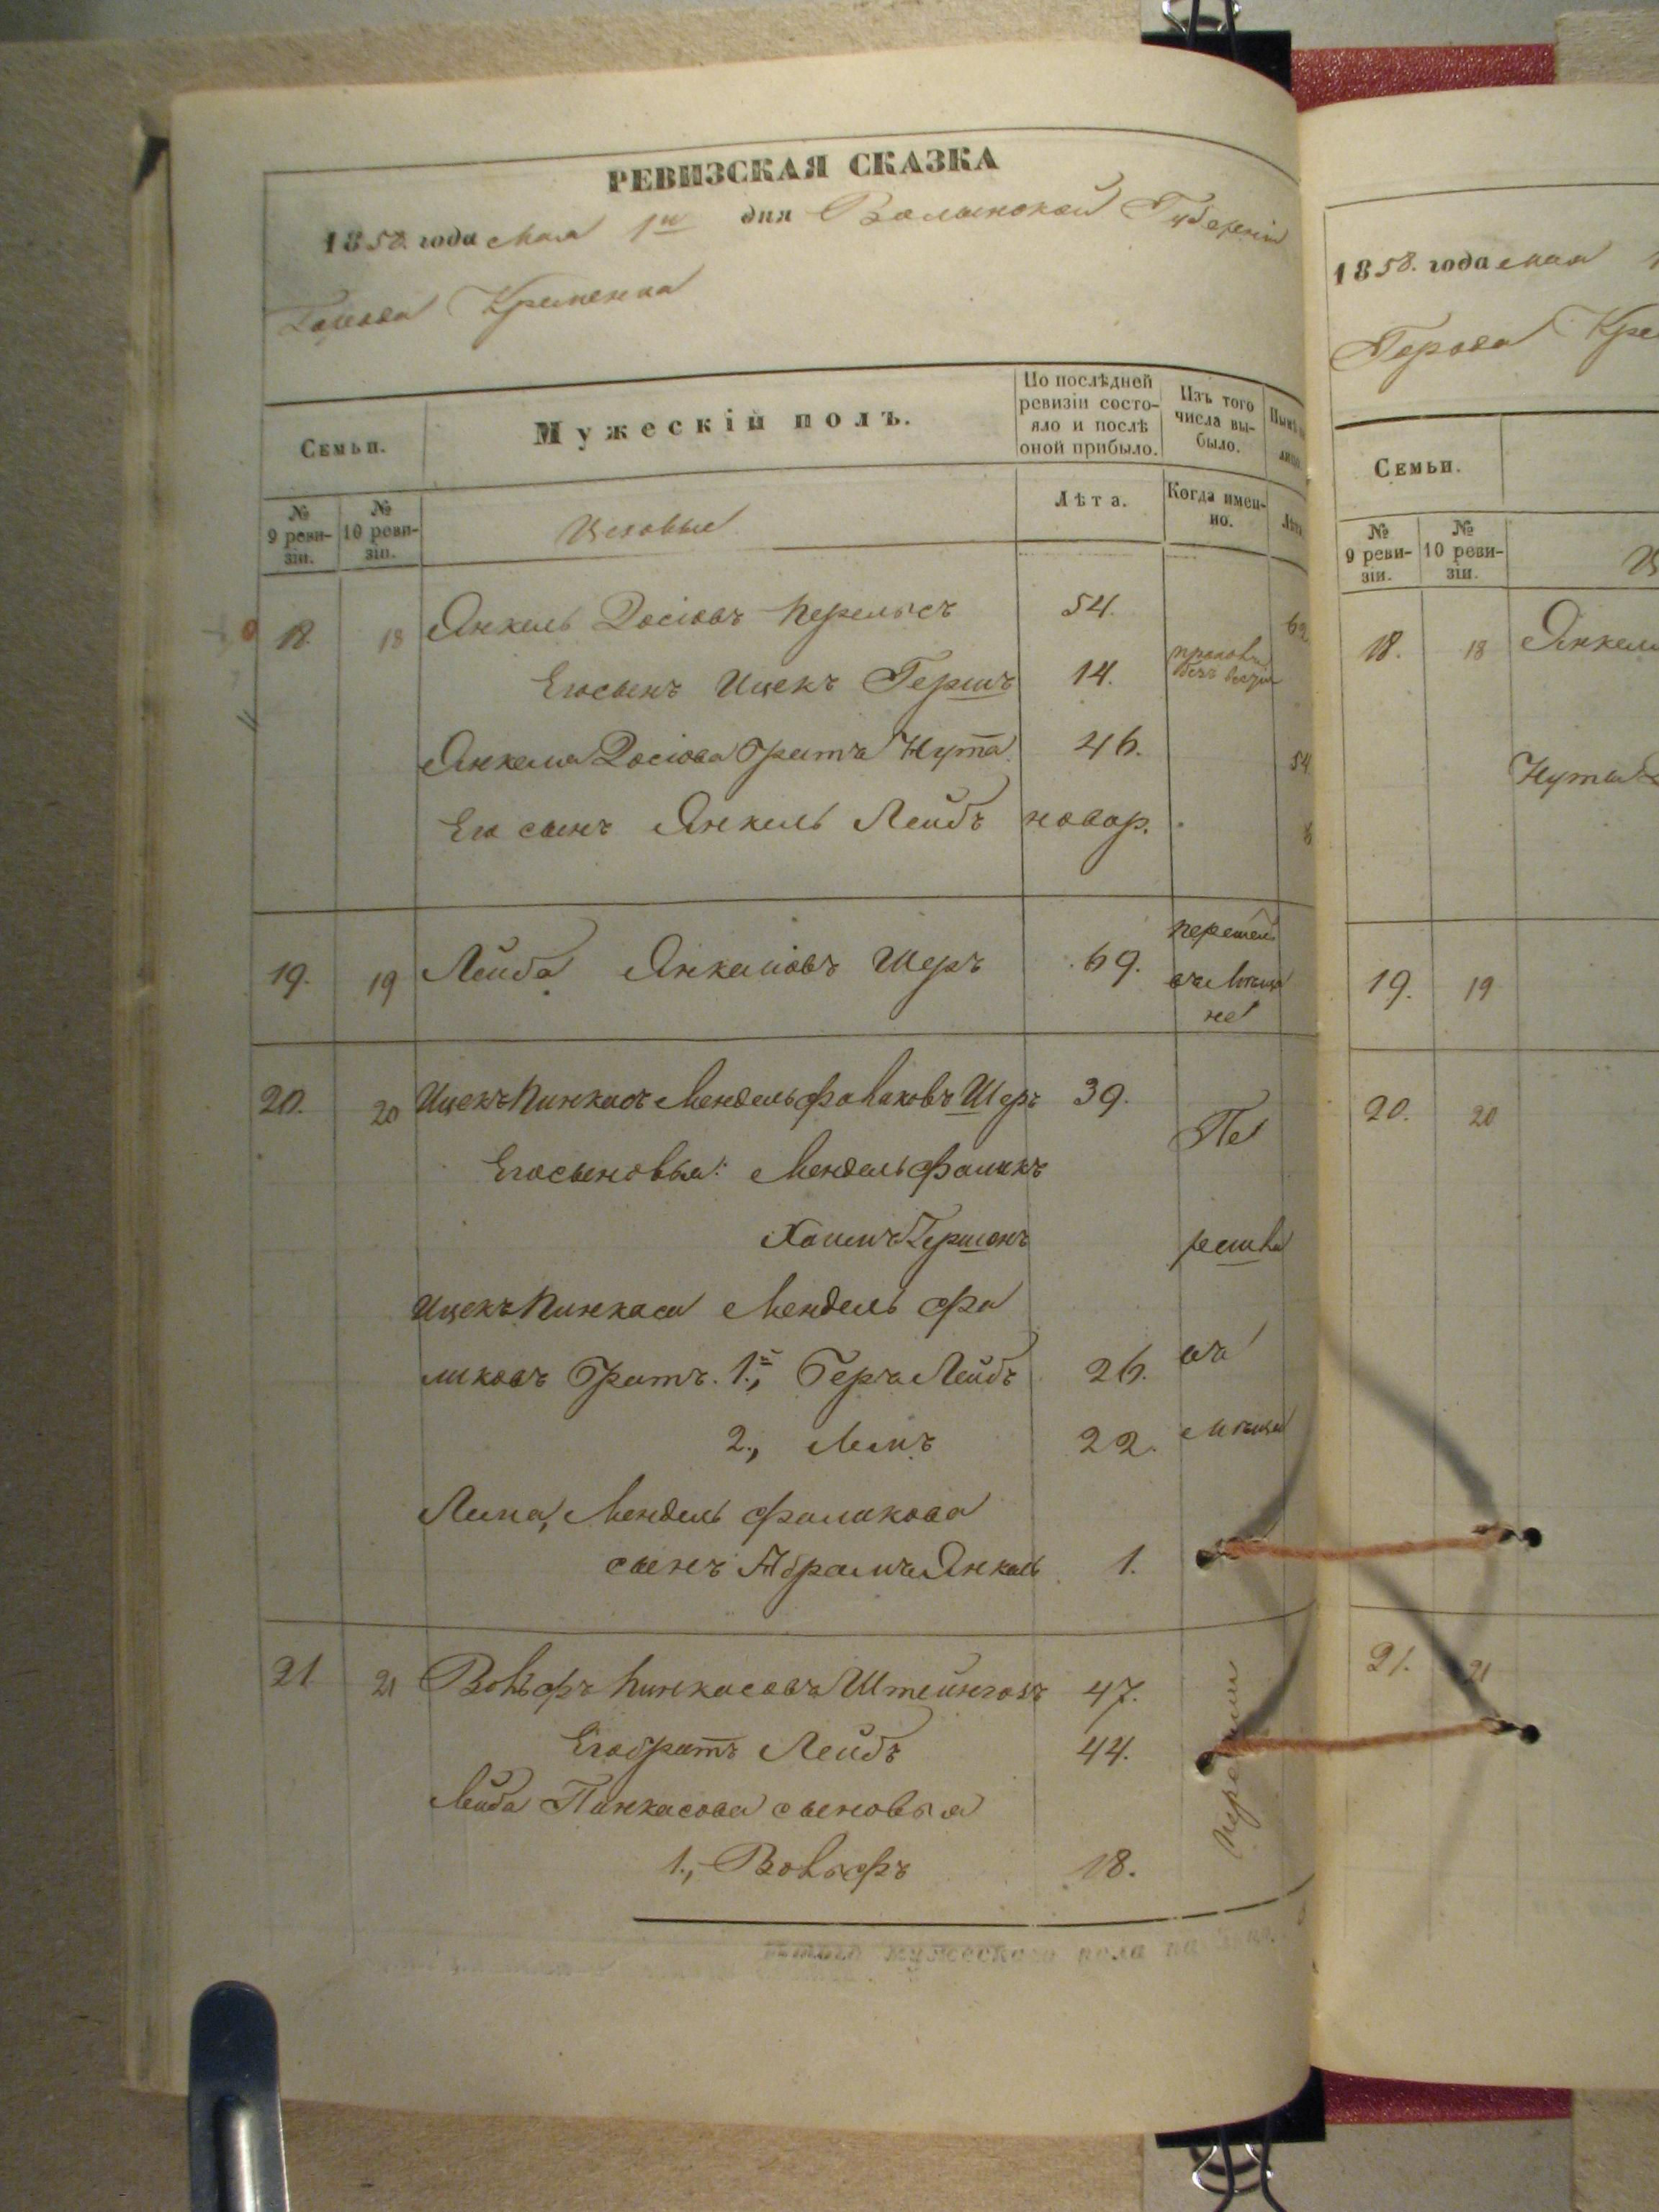 РЕВИЗСКАЯ СКАЗКА
1858 года Мая 1го дня Волынской Губерніи
Города Кременца
Семьи.
Мужескій полъ.
По послѣдней ревизіи состо-яло и послѣ оной прибыло.
Изъ того числа вы-было.
№ 9 реви-зіи.
№ 10 реви-зіи.
Цеховые
Лѣта.
Когда имен-но.
18. 18 Янкель Іосіовъ Перельсъ 54. 62
Его сынъ Ицекъ Гершъ 14.
безъ
Янкеля Іосіова братъ Нута 46. 54
Его сынъ Янкель Лейбъ новор. 8
19. 19 Лейба Янкеліовъ Шеръ 69.
20. 20 Ицекъ Пинкасъ Мендель Фаликовъ Шеръ 39.
Его сыновья: Мендель Фаликъ
Хаимъ Гершонъ
Ицекъ Пинкаса Мендель Фа
ликовъ братъ. 1й, Беръ Лейбъ 26.
2., 22.
Мендель Фаликова
сынъ Абрамъ Янкель 1.
21 21 Вольфъ Пинкасовъ Штейнгольъ 47.
Его братъ Лейбъ 44.
Лейба Пинкасова сыновья
1., Вольфъ 18.
1858. года Мая
Города Кре
Семьи.
№ 9 реви-зіи.
№ 10 реви-зіи.
18. 18 Янкеля
Нуты
19. 19
20. 20
21. 21